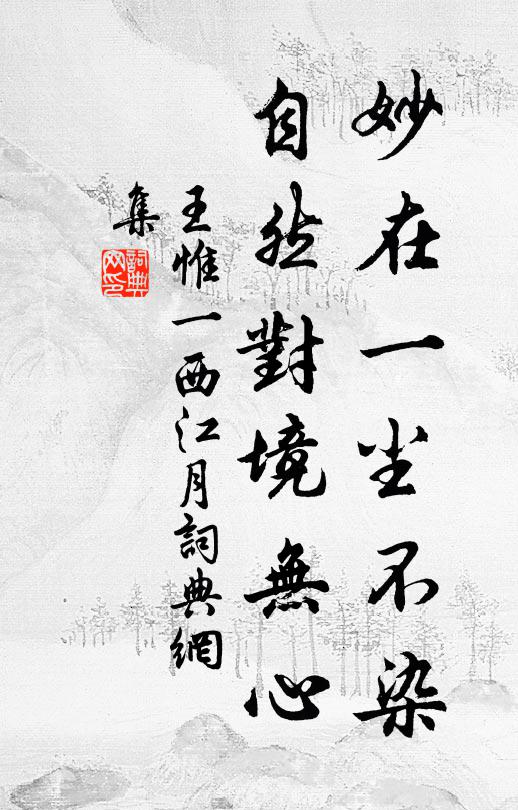 妙在一尘不染
自然對境無心
王惟一西江月詞典網
集
詞典
网印